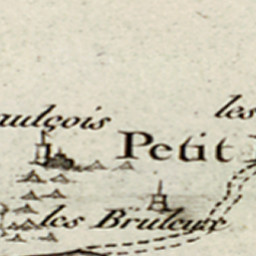 aulçois
les
Petit
les Bruleux